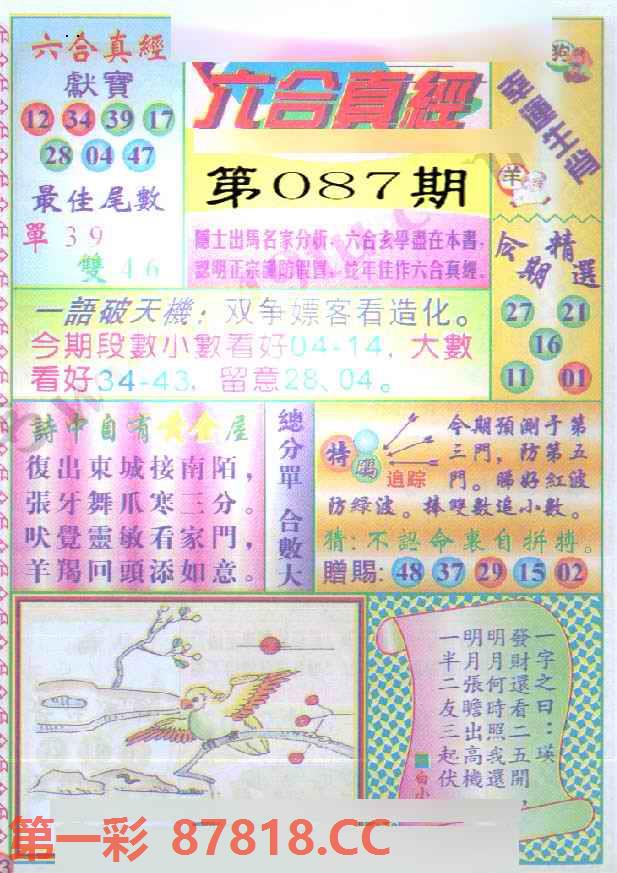 六合真經
獻寶
12 34 39 17
28 04 47
最佳尾數
單39
雙46
六合真經
第087期
隱士出馬名家分析，六合玄學盡在本書，
認明正宗謹防假冒，蛇年佳作六合真經。
狗
幸運生肖
羊
一語破天機：双争嫖客看造化。
今期段數小數看好04-14，大數
看好34-43，留意28、04。
今期精選
27 21
16
11 01
詩中自有黃金屋
復出東城接南陌，
張牙舞爪寒三分。
吠覺靈敏看家門，
羊羯回頭添如意。
總分單 合數大
特 追踪
今期預測于第
三門，防第五
門。睇好紅波
防綠波。捧雙數追小數。
猜：不認命裏自拼搏。
贈賜：48 37 29 15 02
一字之曰：瑛
發財還看二五開，
明月何時照我還
明月張瞻出高機
一半二友三起伏
第一彩 87818.CC